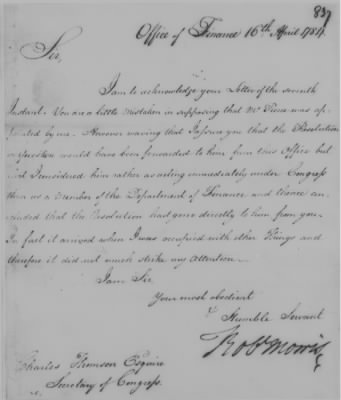 837
Office of Finance 16th April 1784
Sir,
I am to acknowledge your Letter of the seventh
Instant. You are a little mistaken in supposing that Mr Pierce was ap-
pointed by me. However waving that I assure you that the Resolution
in Question would have been forwarded to him from this Office but
that I considered him rather as acting immediately under Congress
than as a Member of the Department of Finance and thence con-
cluded that the Resolution had gone directly to him from you.
In fact it arrived when I was occupied with other Things and
therefore it did not much strike my Attention.
I am Sir
Your most obedient
& Humble Servant
Robt Morris
Charles Thomson Esquire
Secretary of Congress.